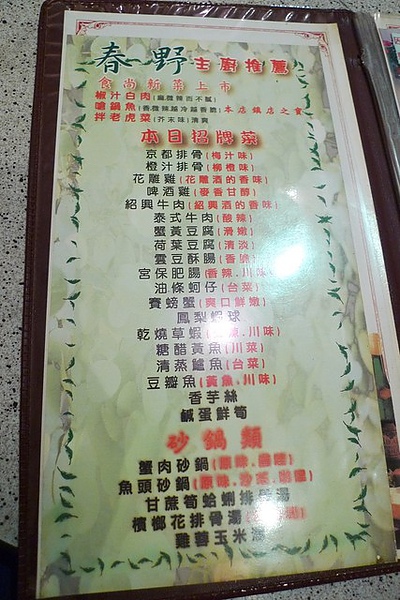 春野主廚推薦
食尚新菜上市
椒汁白肉(麻酸辣而不膩)
嗆鍋魚(香酸辣越冷越香脆)本店鎮店之寶
拌老虎菜(芥末味)清爽
本日招牌菜
京都排骨(梅汁味)
橙汁排骨(柳橙味)
花雕雞(花雕酒的香味)
啤酒雞(麥香甘醇)
紹興牛肉(紹興酒的香味)
泰式牛肉(酸辣)
蟹黃豆腐(滑嫩)
荷葉豆腐(清淡)
雲豆酥腸(香脆)
宮保肥腸(香辣.川味)
油條蚵仔(台菜)
賽螃蟹(爽口鮮嫩)
鳳梨蝦球
乾燒草蝦(辣.川味)
糖醋黃魚(川菜)
清蒸鱸魚(台菜)
豆瓣魚(黃魚.川味)
香芋絲
鹹蛋鮮筍
砂鍋類
蟹肉砂鍋(原味.
魚頭砂鍋(原味.沙茶.
甘蔗筍蛤蜊排骨湯
檳榔花排骨湯
雞蓉玉米